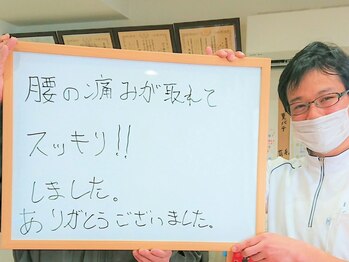 腰の痛みが取れて
スッキリ!!
しました。
ありがとうございました。